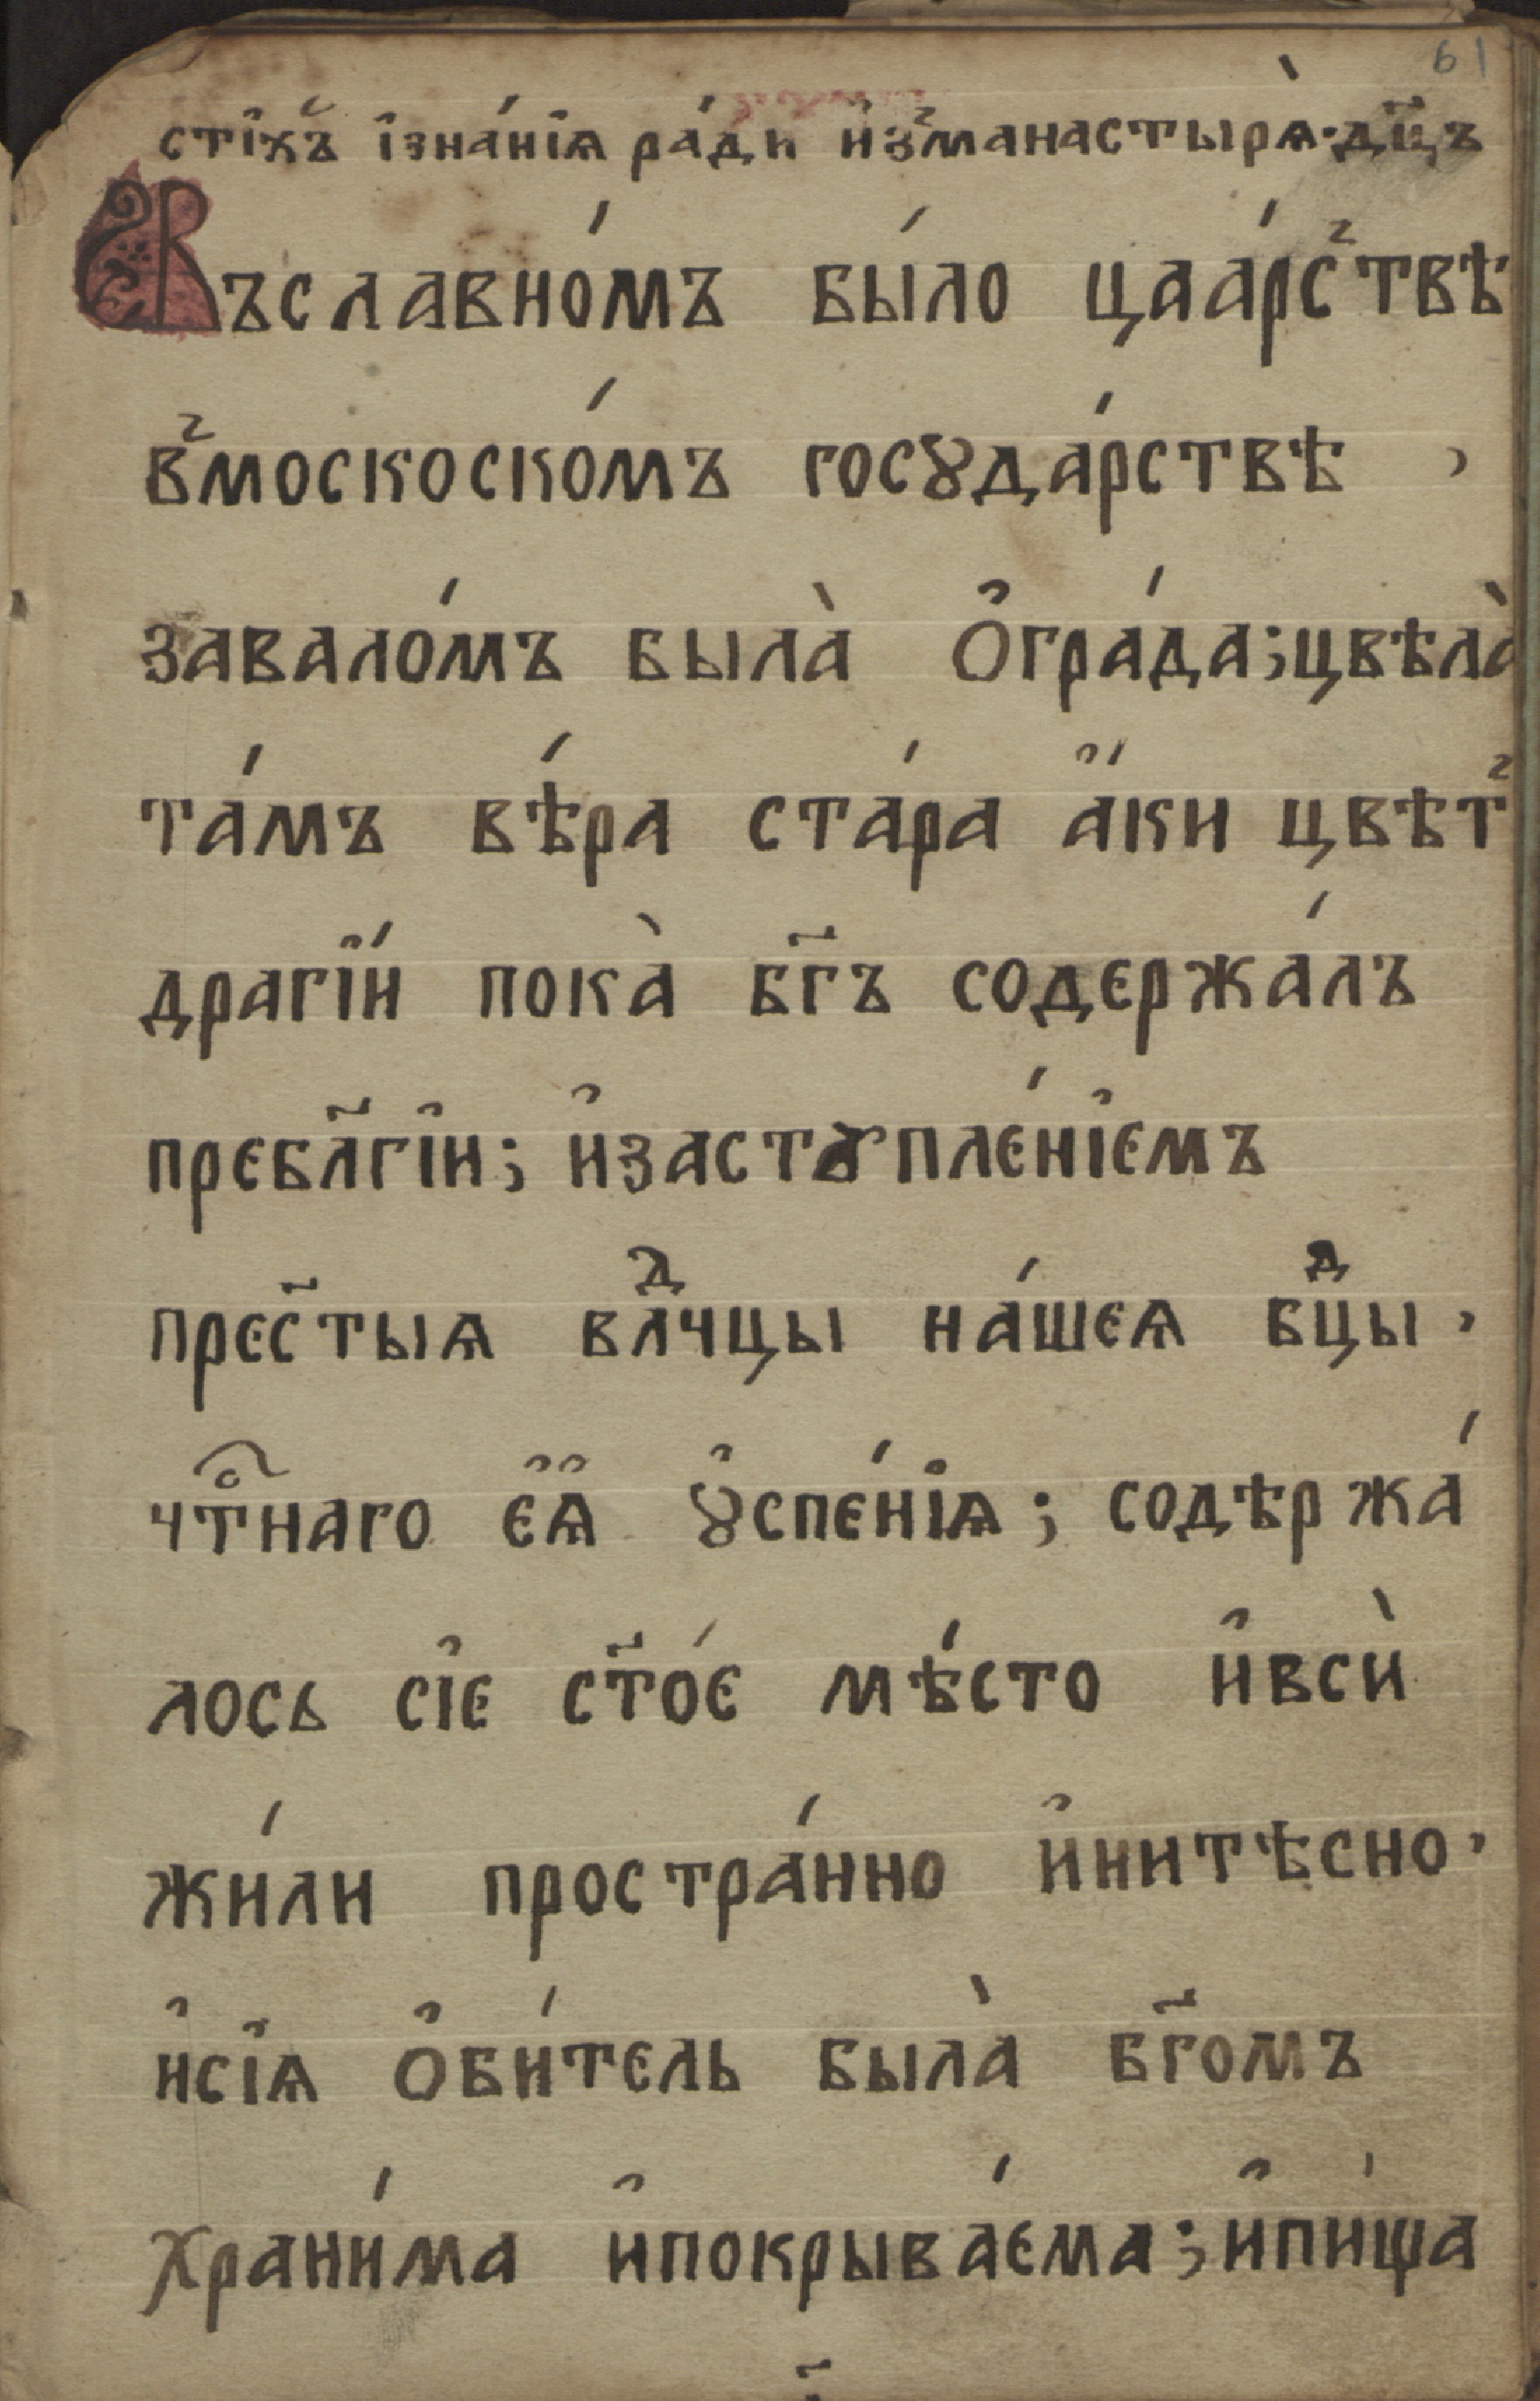 61
стїхъ̾ і҆зна́нїѧ ра́ди и҆з̾манастырѧ̀·дц҃ъ
Въславно́мъ бы́ло цаа́рс̾твѣ
в̾москоско́мъ госꙋда́рствѣ ,
завало́мъ была̀ о҆гра́да; цвѣла̀
та́мъ вѣ́ра ста́ра а҆́ки цвѣт̾
драгі҆́и пока̀ бг҃ъ содержа́лъ
пребл҃гі҆и; и҆застꙋпле́нї҆емъ
прес҃тыѧ влⷣчцы на́шеѧ бⷣцы,
чтⷭ҇наго е҆ѧ҆ ꙋ҆спе́нїѧ; содѣржа́
лось сі҆е ст҃о́е мѣ́сто и҆всѝ
жи́ли простра́нно и҆нитѣсно,
и҆сі҆ѧ о҆би́тель была̀ бг҃омъ
храни́ма и҆покрыва́ема; и҆пи́ща